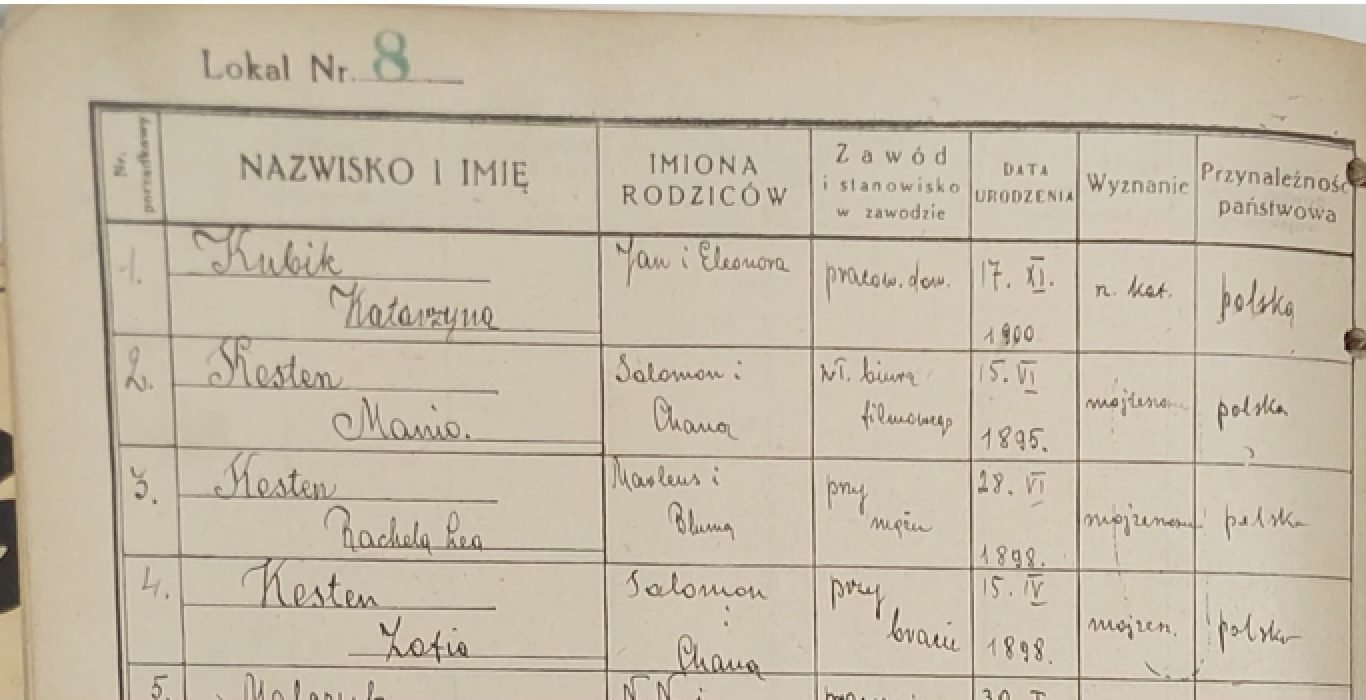 Lokal Nr. 8
Nr. porządkowy
NAZWISKO I IMIĘ
IMIONA
RODZICÓW
Zawód
i stanowisko
w zawodzie
DATA
URODZENIA
Wyznanie
Przynależność
państwowa
1.
Kubik
Katarzyna
Jan i Eleonora
pracow. dom.
17. XI.
1900
r. kat.
polska
2.
Kesten
Salomon i
Chana
wł. biura
filmowego
15. VI
1895.
polska
3.
Kesten
Rachela Lea
Bluma
przy
mężu
28. VI
1898.
polska
4.
Kesten
Zofia
Salomon
i
Chana
przy
bracie
15. IV
1898.
mojżesz.
polska
5.
N N i
30. I